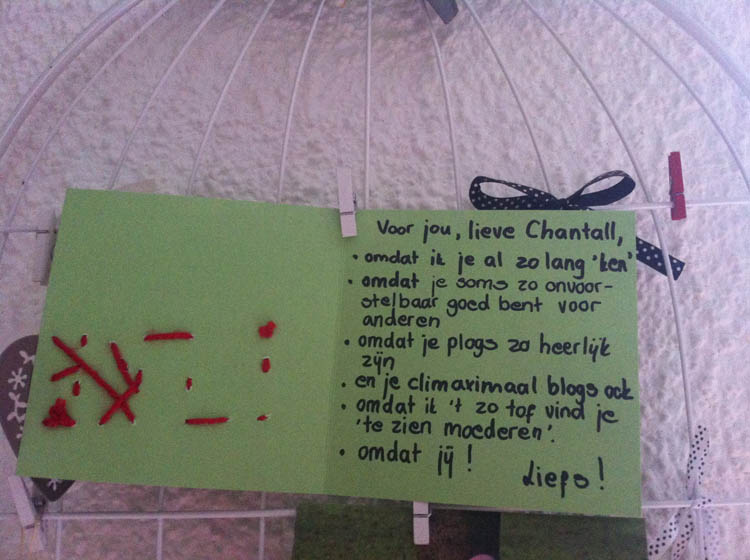 Voor jou, lieve Chantall,
• omdat ik je al zo lang 'ken'
• omdat je soms zo onvoor-
stelbaar goed bent voor
anderen
• omdat je plogs zo heerlijk
zijn
• en je climaximaal blogs ook
• omdat ik 't zo tof vind je
'te zien moederen'.
• omdat jij!
Liefs!